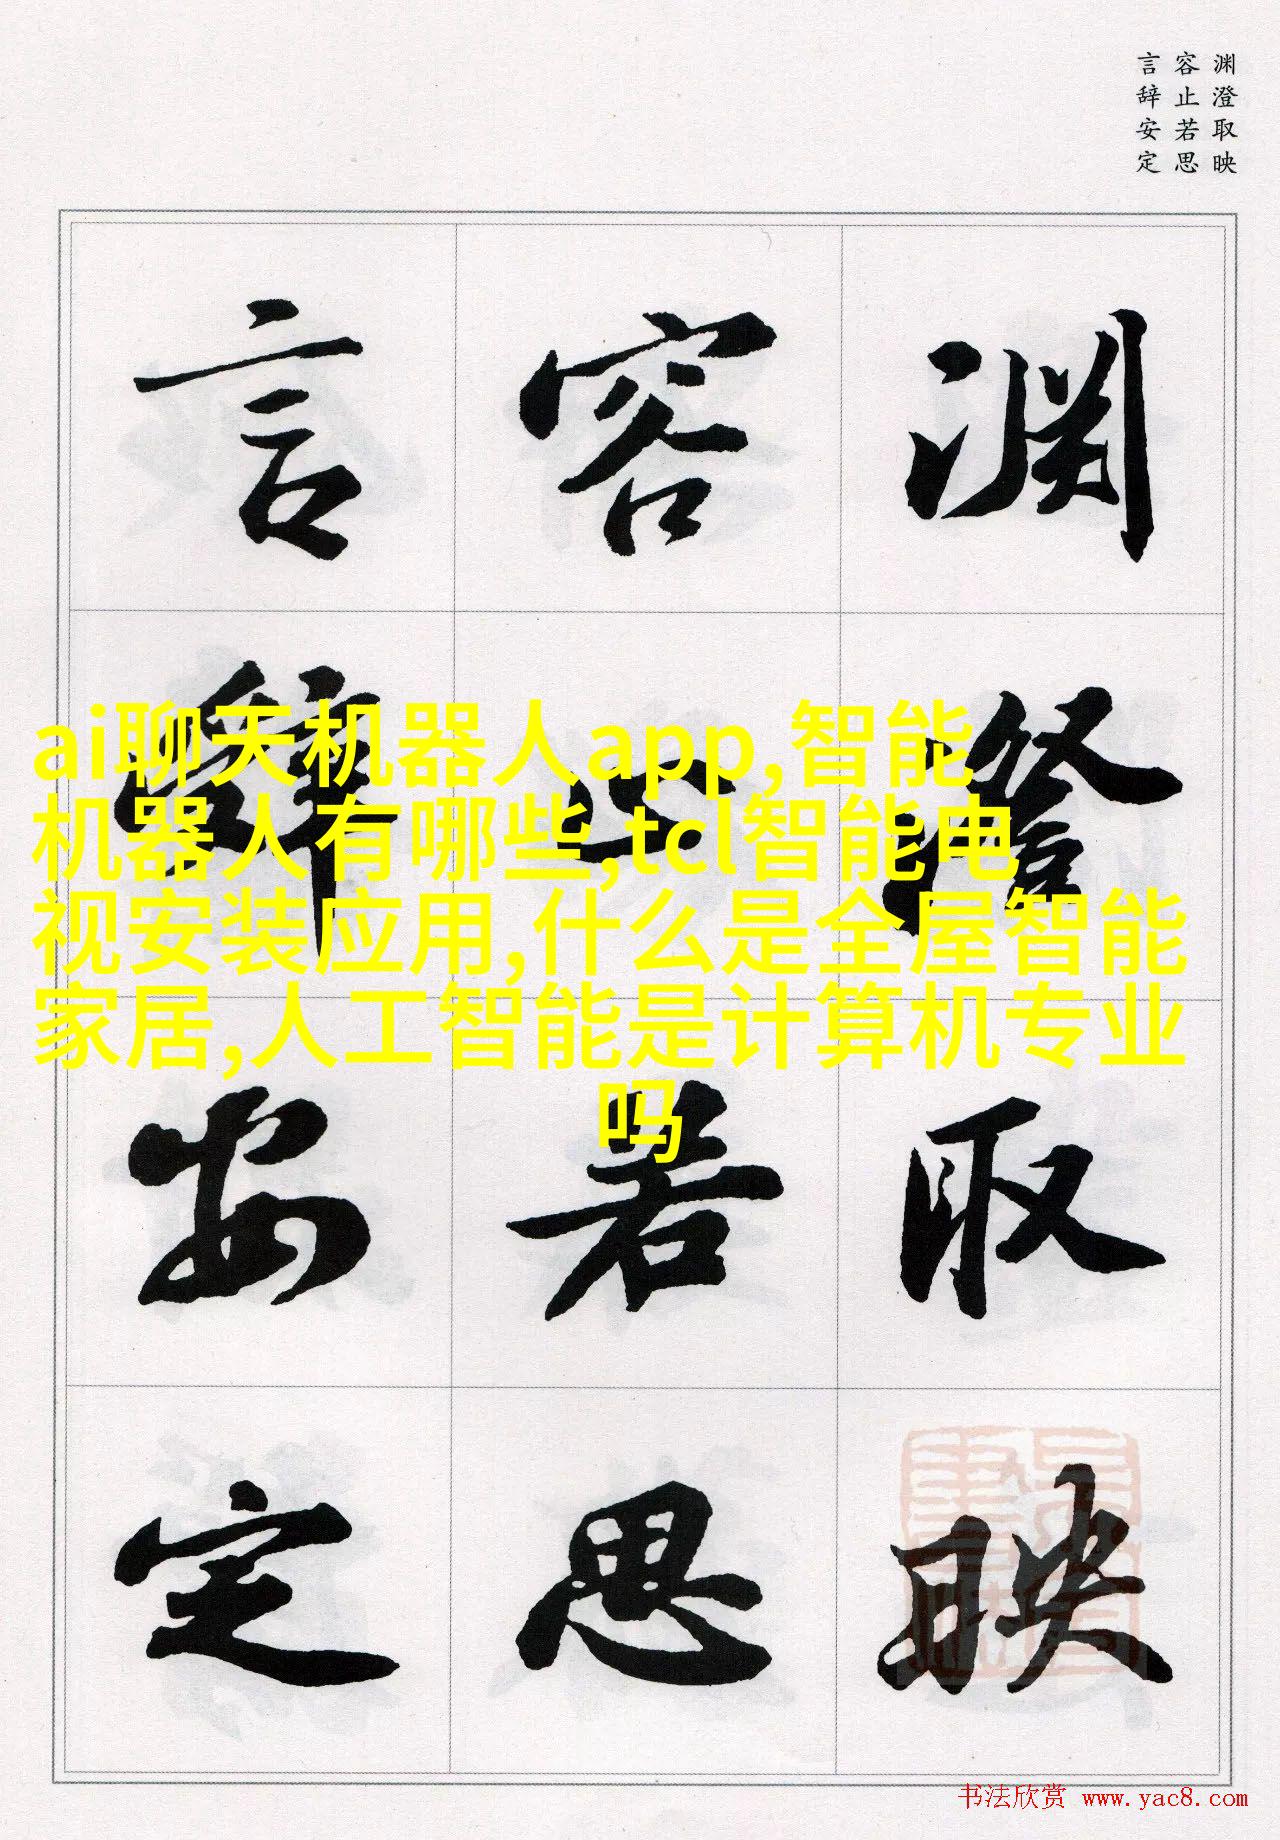 渊澄取映
容止若思
言辞安定
渊澄取映
容止若思
言辞安定
ai聊天机器人app,智能
机器人有哪些,tcl智能电
视安装应用,什么是全屋智能
家居,人工智能是计算机专业
吗
书法欣赏 www.yac8.com